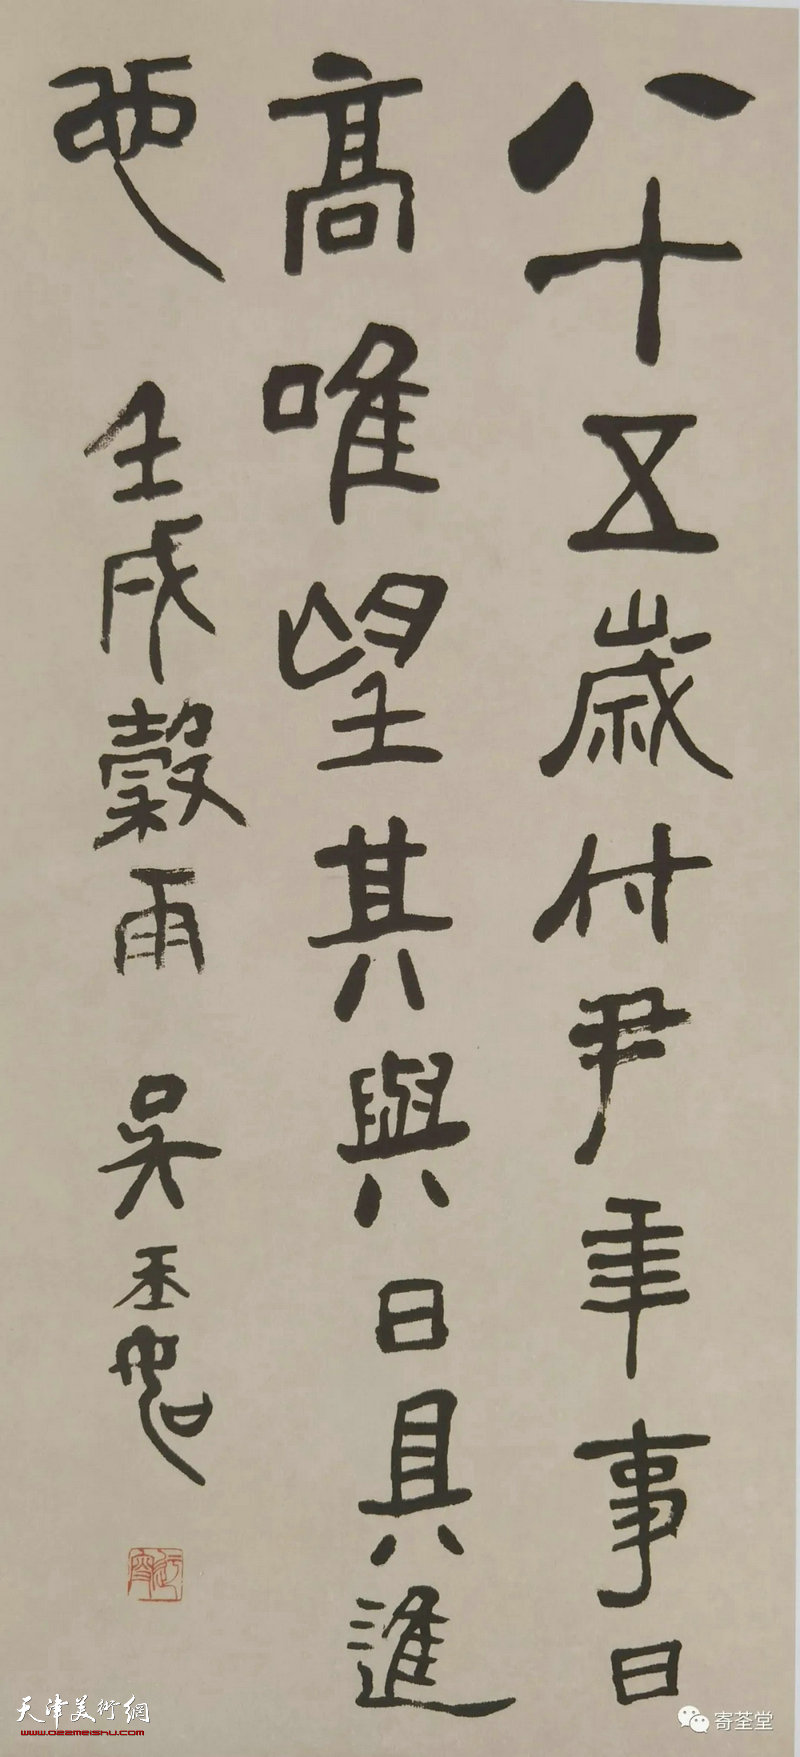 八十五歲付尹年事日
高唯望其與日具進
也 壬戌穀雨 吳玉如
天津美術網
www.022meishu.com
寄荃堂